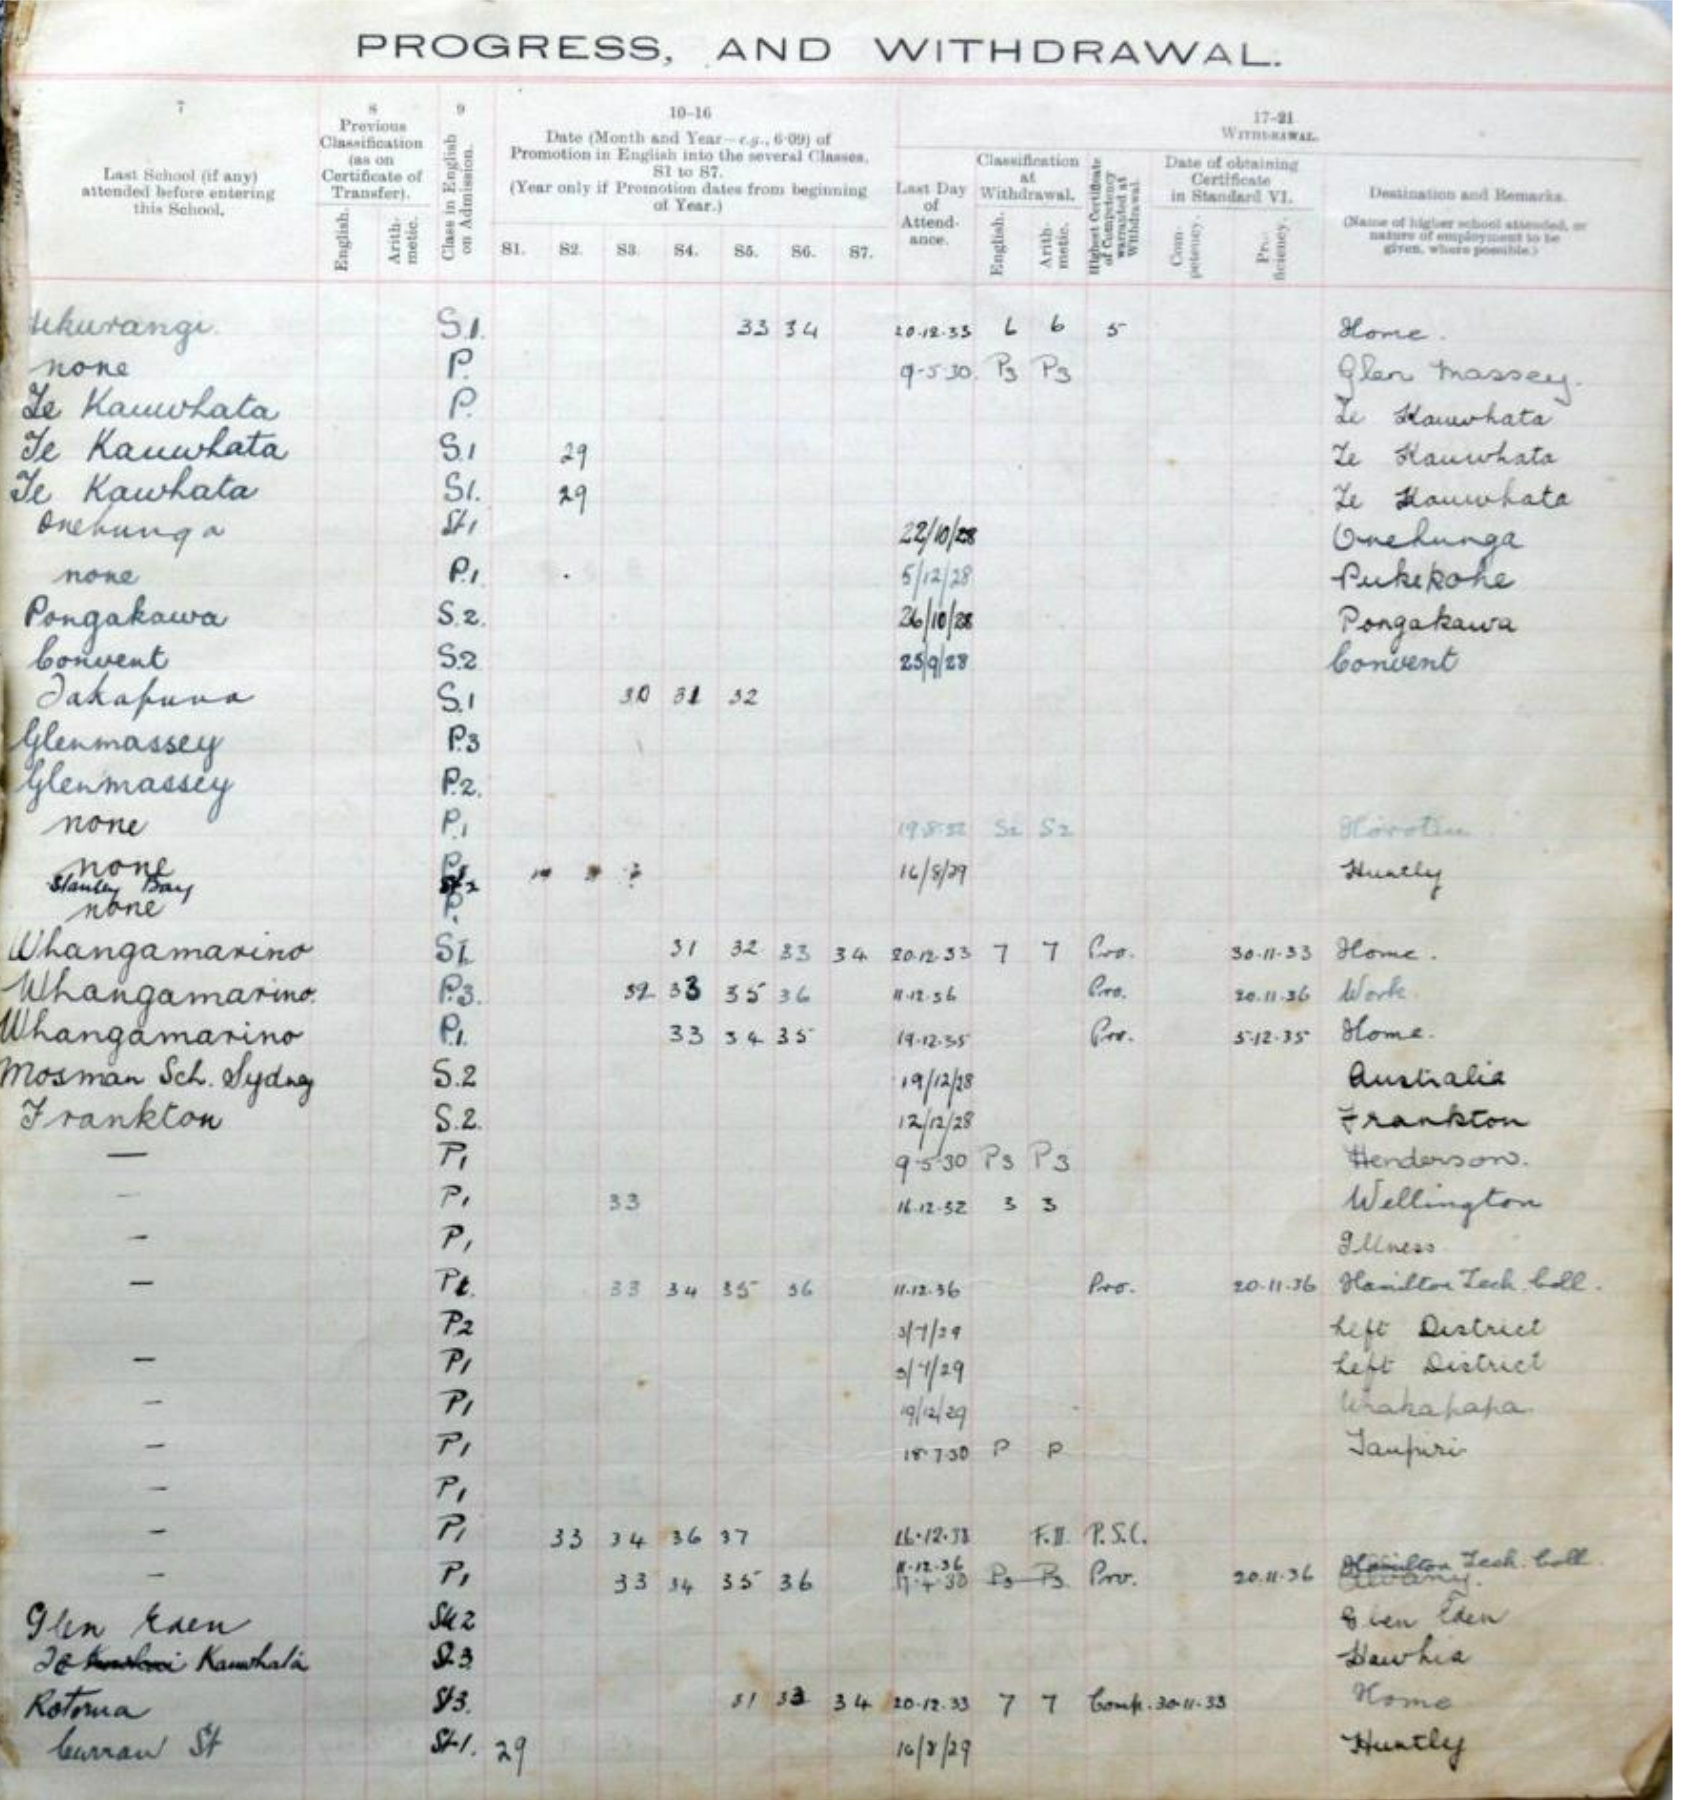 PROGRESS, AND WITHDRAWAL.
7
Last School (if any) attended before entering this School.
8
Previous Classification (as on Certificate of Transfer).
English.
Arithmetic.
9
Class in English on Admission.
10-16
Date (Month and Year—e.g., 6·09) of Promotion in English into the several Classes, S1 to S7.
(Year only if Promotion dates from beginning of Year.)
S1. S2. S3. S4. S5. S6. S7.
17-21
WITHDRAWAL.
Last Day of Attendance.
Classification at Withdrawal.
English.
Arithmetic.
Highest Certificate of Competency warranted at Withdrawal.
Date of obtaining Certificate in Standard VI.
Competency.
Proficiency.
Destination and Remarks.
(Name of higher school attended, or nature of employment to be given, where possible.)
S.1. 33 34 20.12.33 6 6 5 Home.
none P. 9-5-30. P3 P3 Glen Massey.
Te Kauwhata P. Te Kauwhata
Te Kauwhata S.1 29 Te Kauwhata
Te Kawhata S1. 29 Te Kauwhata
Onehunga St1 22/10/28 Onehunga
none P.1. 5/12/28 Pukekohe
Pongakawa S.2. 26/10/28 Pongakawa
Convent S.2 25/9/28 Convent
Takapuna S.1 30 31 32
Glenmassey P.3
Glenmassey P.2.
none P.1 S2 S2
none P1 16/8/29 Huntly
Stanley Bay
none P.
Whangamarino S1. 31 32 33 34 20.12.33 7 7 Pro. 30-11-33 Home.
Whangamarino. P.3. 32 33 35 36 11.12.36 Pro. 20.11.36 Work.
Whangamarino P.1. 33 34 35 19.12.35 Pro. 5-12-35 Home.
Mosman Sch. Sydney S.2 19/12/28 Australia
Frankton S.2. 12/12/28 Frankton
— P1 9-5-30 P3 P3 Henderson.
— P1 33 16.12.32 3 3 Wellington
— P1 Illness
— 33 34 35 36 11.12.36 Pro. 20-11-36 Hamilton Tech. Coll.
P2 3/7/29 Left District
— P1 3/7/29 Left District
— P1 19/12/29 Whakapapa
— P1 18.7.30 P P Taupiri
— P1
— P1 33 34 36 37 F.II. P.S.C.
— P1 33 34 35 36 11.12.36 P3 P3 Pro. 20.11.36 Hamilton Tech. Coll.
Glen Eden St2 Glen Eden
Te Kauwhata S3 Kawhia
Rotorua St3. 31 33 34 20.12.33 7 7 Comp. 30-11-33 Home
Curran St St1. 29 16/8/29 Huntly